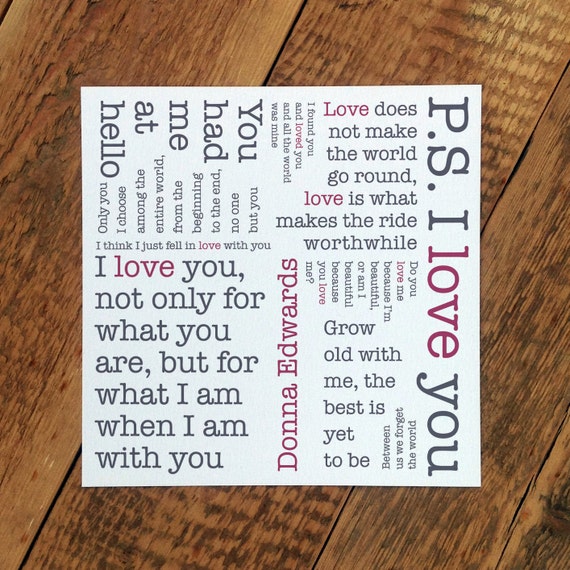 You
had
me
at
hello
Only you
I choose
among the
entire world,
from the
beginning
to the end,
no one
but you
I found you
and loved you
and all the world
was mine
Love does
not make
the world
go round,
love is what
makes the ride
worthwhile
P.S. I love you
I think I just fell in love with you
I love you,
not only for
what you
are, but for
what I am
when I am
with you
Donna Edwards
Do you
love me
because I'm
beautiful,
or am I
beautiful
because
you love
me?
Grow
old with
me, the
best is
yet
to be
Between
us we forget
the world